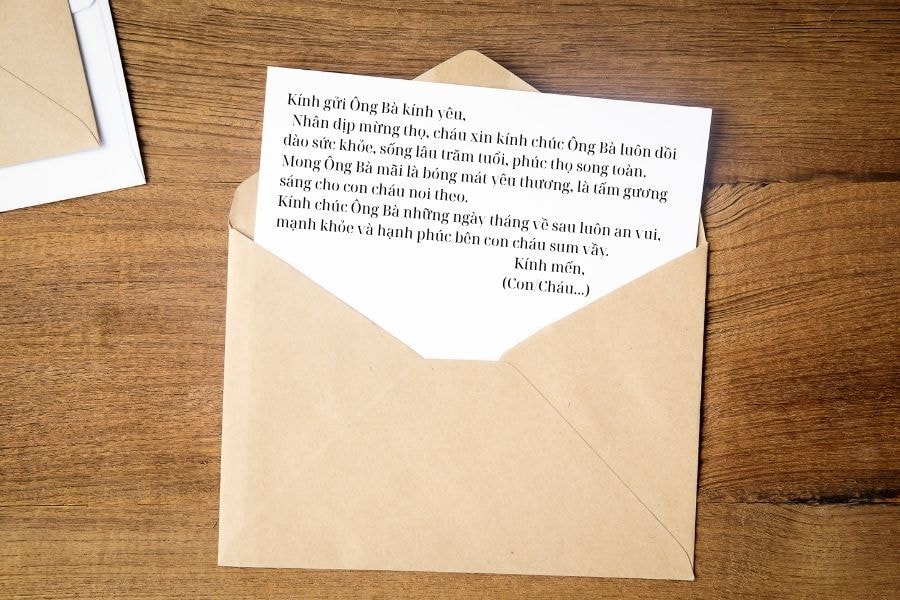 Kính gửi Ông Bà kính yêu,
Nhân dịp mừng thọ, cháu xin kính chúc Ông Bà luôn dồi
dào sức khỏe, sống lâu trăm tuổi, phúc thọ song toàn.
Mong Ông Bà mãi là bóng mát yêu thương, là tấm gương
sáng cho con cháu noi theo.
Kính chúc Ông Bà những ngày tháng về sau luôn an vui,
mạnh khỏe và hạnh phúc bên con cháu sum vầy.
Kính mến,
(Con/Cháu...)